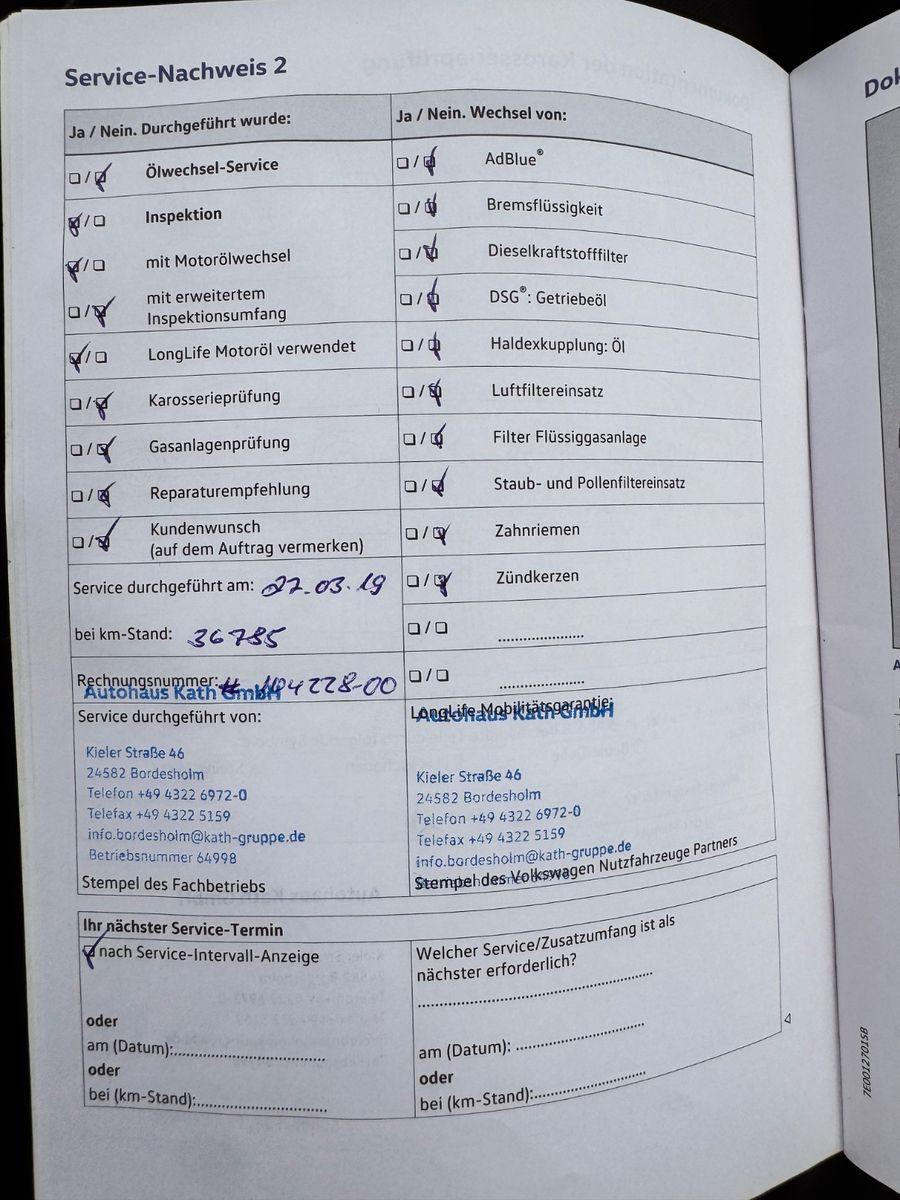 Service-Nachweis 2
Ja / Nein. Durchgeführt wurde:
Ölwechsel-Service
Inspektion
mit Motorölwechsel
mit erweitertem
Inspektionsumfang
LongLife Motoröl verwendet
Karosserieprüfung
Gasanlagenprüfung
Reparaturempfehlung
Kundenwunsch
(auf dem Auftrag vermerken)
Service durchgeführt am: 27.03.19
bei km-Stand: 36785
Rechnungsnummer:
Autohaus Kath GmbH
Service durchgeführt von:
Kieler Straße 46
24582 Bordesholm
Telefon +49 4322 6972-0
Telefax +49 4322 5159
info.bordesholm@kath-gruppe.de
Betriebsnummer 64998
Stempel des Fachbetriebs
Ja / Nein. Wechsel von:
AdBlue®
Bremsflüssigkeit
Dieselkraftstofffilter
DSG®: Getriebeöl
Haldexkupplung: Öl
Luftfiltereinsatz
Filter Flüssiggasanlage
Staub- und Pollenfiltereinsatz
Zahnriemen
Zündkerzen
LongLife Mobilitätsgarantie:
Autohaus Kath GmbH
Kieler Straße 46
24582 Bordesholm
Telefon +49 4322 6972-0
Telefax +49 4322 5159
info.bordesholm@kath-gruppe.de
Stempel des Volkswagen Nutzfahrzeuge Partners
Ihr nächster Service-Termin
nach Service-Intervall-Anzeige
oder
am (Datum):
oder
bei (km-Stand):
Welcher Service/Zusatzumfang ist als
nächster erforderlich?
am (Datum):
oder
bei (km-Stand):
7E0012701SB